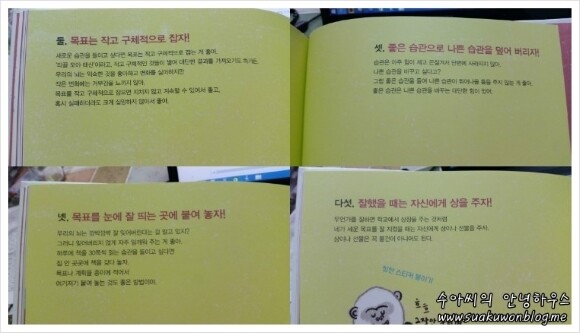 둘, 목표는 작고 구체적으로 잡자!
새로운 습관을 들이고 싶다면 목표는 작고 구체적으로 잡는 게 좋아.
'티끌 모아 태산'이라고, 작고 구체적인 것들이 쌓여 대단한 결과를 가져오기도 하거든.
우리의 뇌는 익숙한 것을 좋아하고 변화를 싫어하지만
작은 변화에는 거부감을 느끼지 않아.
목표를 작고 구체적으로 잡으면 지키지 않고 계속할 수 있어서 좋고,
혹시 실패하더라도 크게 실망하지 않아서 좋아.
셋, 좋은 습관으로 나쁜 습관을 덮어 버리자!
습관은 아주 힘이 세고 끈질겨서 단번에 사라지지 않아.
나쁜 습관을 바꾸고 싶다고?
그럼 좋은 습관을 들여 나쁜 습관이 튀어나올 틈을 주지 않는 게 좋아.
좋은 습관은 나쁜 습관을 바꾸는 대단한 힘이 있어.
넷, 목표를 눈에 잘 띄는 곳에 붙여 놓자!
우리의 뇌는 깜박깜박 잘 잊어버린다는 걸 알고 있지?
그러니 잊어버리지 않게 자주 일깨워 주는 게 좋아.
하루에 책을 30쪽씩 읽는 습관을 들이고 싶다면
집 안 곳곳에 책을 갖다 놓자.
목표나 계획을 종이에 적어서
여기저기 붙여 놓는 것도 좋은 방법이야.
다섯, 잘했을 때는 자신에게 상을 주자!
무언가를 잘하면 학교에서 상장을 주는 것처럼
네가 세운 목표를 잘 지켰을 때는 자신에게 상이나 선물을 주자.
상이나 선물은 꼭 물건이 아니어도 된다.
칭찬 스티커 붙이기
수아씨의 안녕하우스
www.suakuwonblog.me